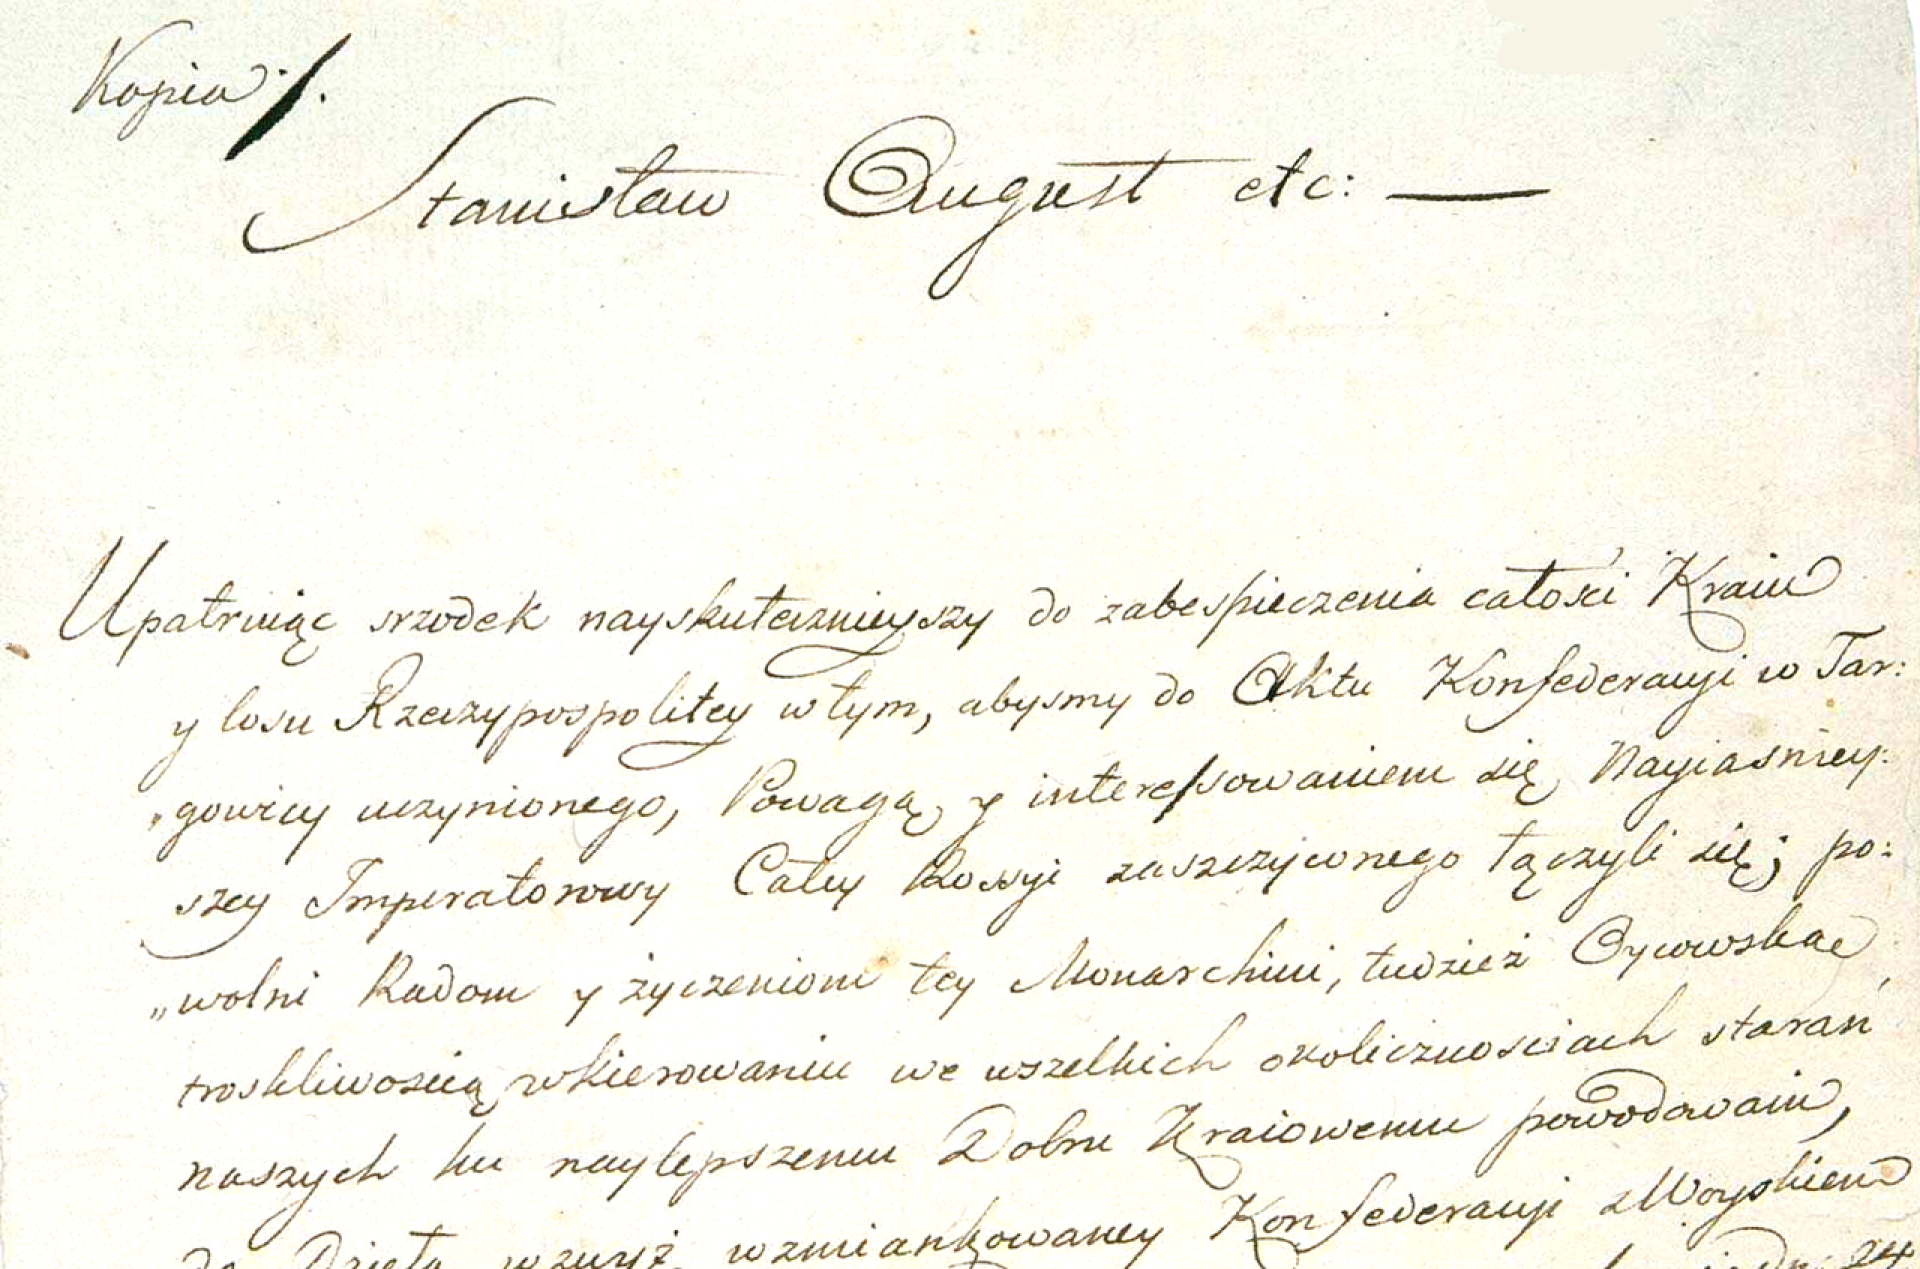 Kopia
Stanisław August etc: —
Upatruiąc srzodek nayskutecznieyszy do zabespieczenia całości Kraiu
y losu Rzeczypospolitey w tym, abysmy do Aktu Konfederacyi w Tar:
„gowicy uczynionego, Powagą y interessowaniem się Nayiasniey:
szey Imperatorowy Całey Rossyi zaszczyconego łączyli się; po:
„wolni Radom y życzeniom tey Monarchini, tudzież Oycowską
troskliwoscią w kierowaniu we wszelkich okolicznosciach starań
naszych ku naylepszemu Dobru Kraiowemu powodowani,
do Dzieła wzwyż wzmiankowaney Konfederacyi z Woyskiem